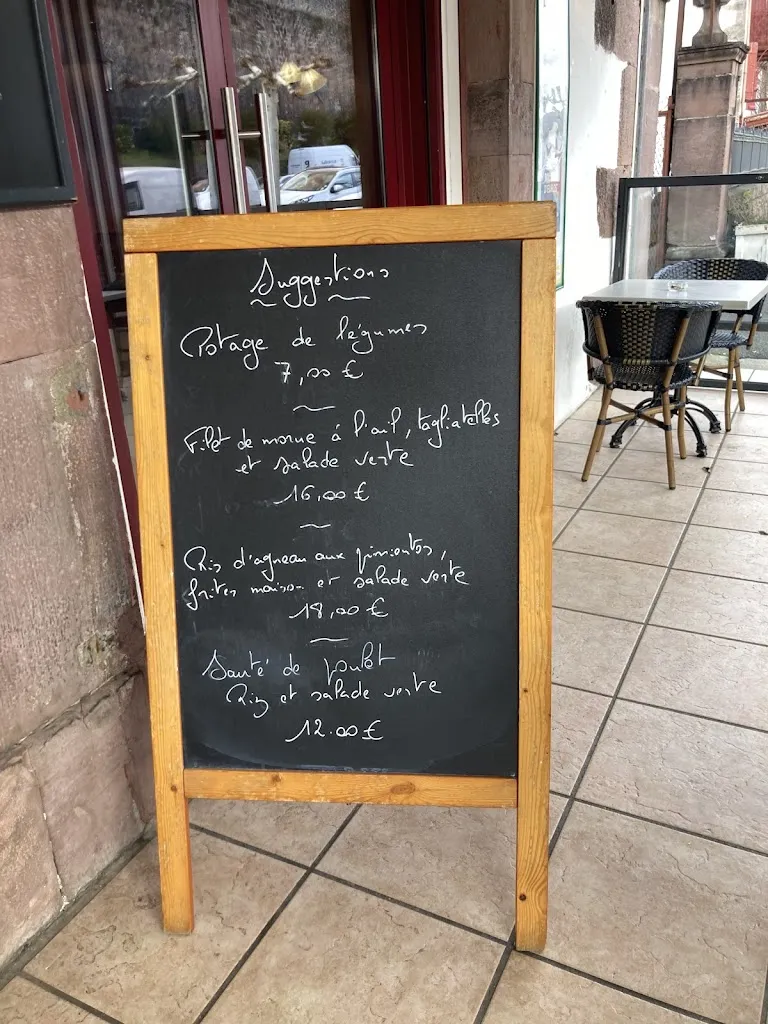 Suggestions
Potage de légumes
7,00 €
Filet de morue à l'ail, tagliatelles
et salade verte
16,00 €
Ris d'agneau aux pimientos,
frites maison et salade verte
18,00 €
Sauté de poulet
Riz et salade verte
12.00 €